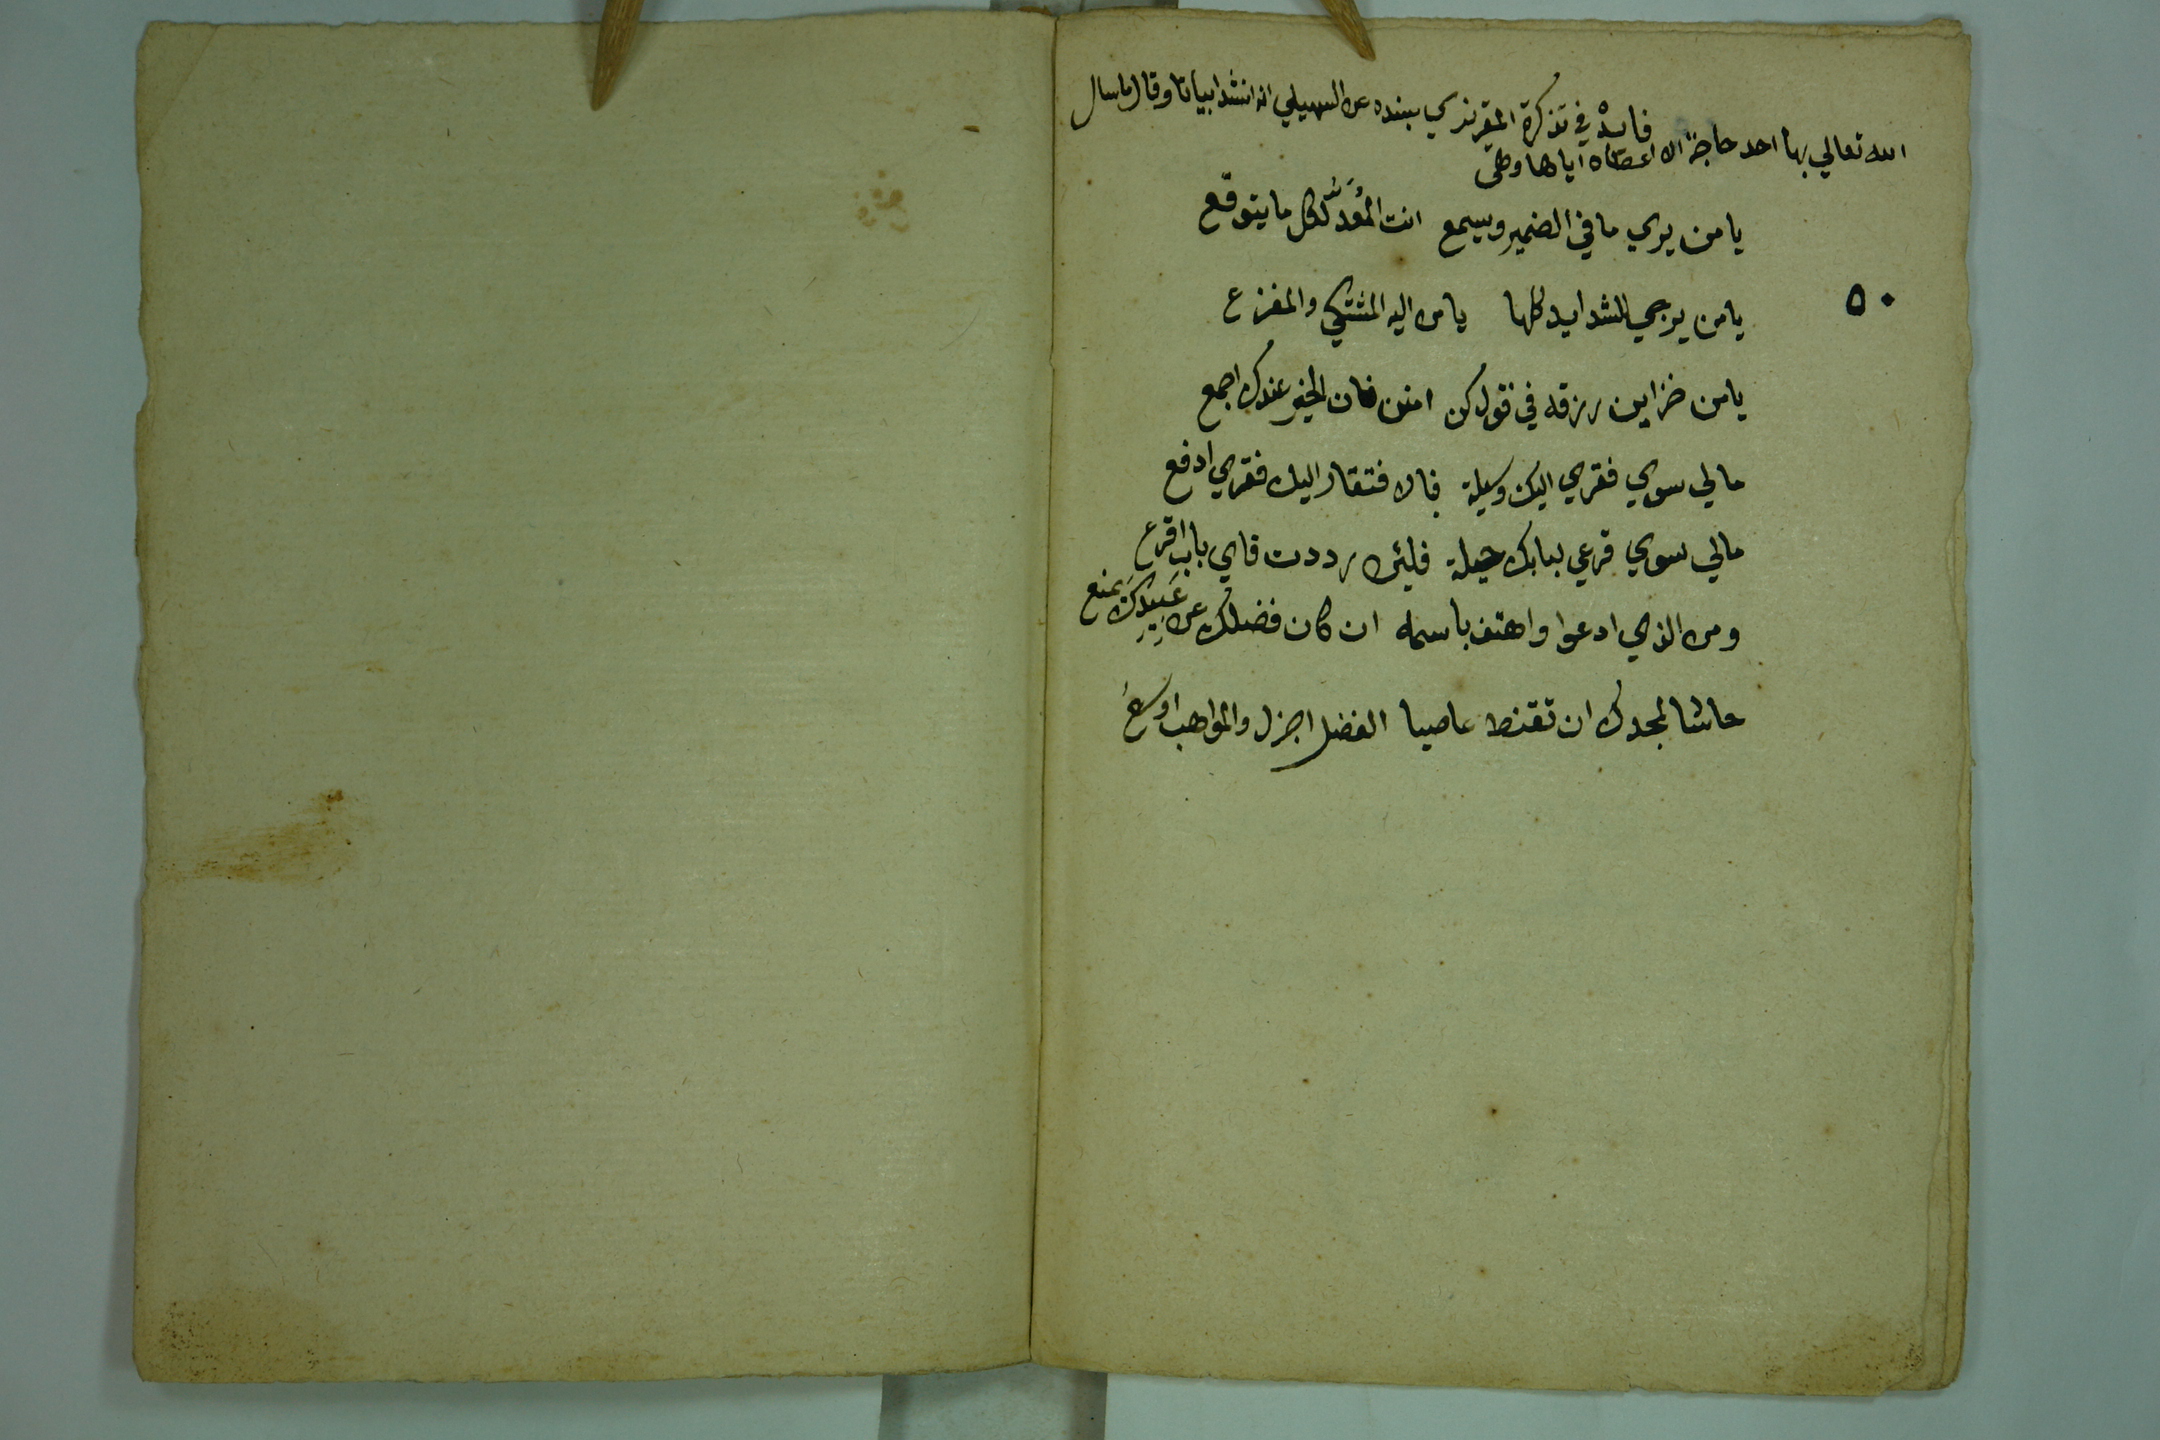 فايدة في تذكرة المقريزي بسنده عن السهيلي انه انشد ابياتا وقال ما سال
الله تعالي بها احد حاجة الا اعطاه اياها وهي
يا من يري ما في الضمير ويسمع انت المُعَدُّ لكل ما يتوقع
٥٠
يا من يرجي للشدايد كلها يا من اليه المشتكي والمفزع
يا من خزاين رزقه في قول كن امنن فان الخير عندك اجمع
مالي سوي فقري اليك وسيلة فبالافتقار اليك فقري ادفع
مالي سوي قرعي ببابك حيلة فلئن رددت فاي باب اقرع
ومن الذي ادعوا واهتف باسمه ان كان فضلك عن عَبِيدِكَ يمنع
حاشا لمجدك ان تقنط عاصيا الفضل اجزل والمواهب اوسعُ